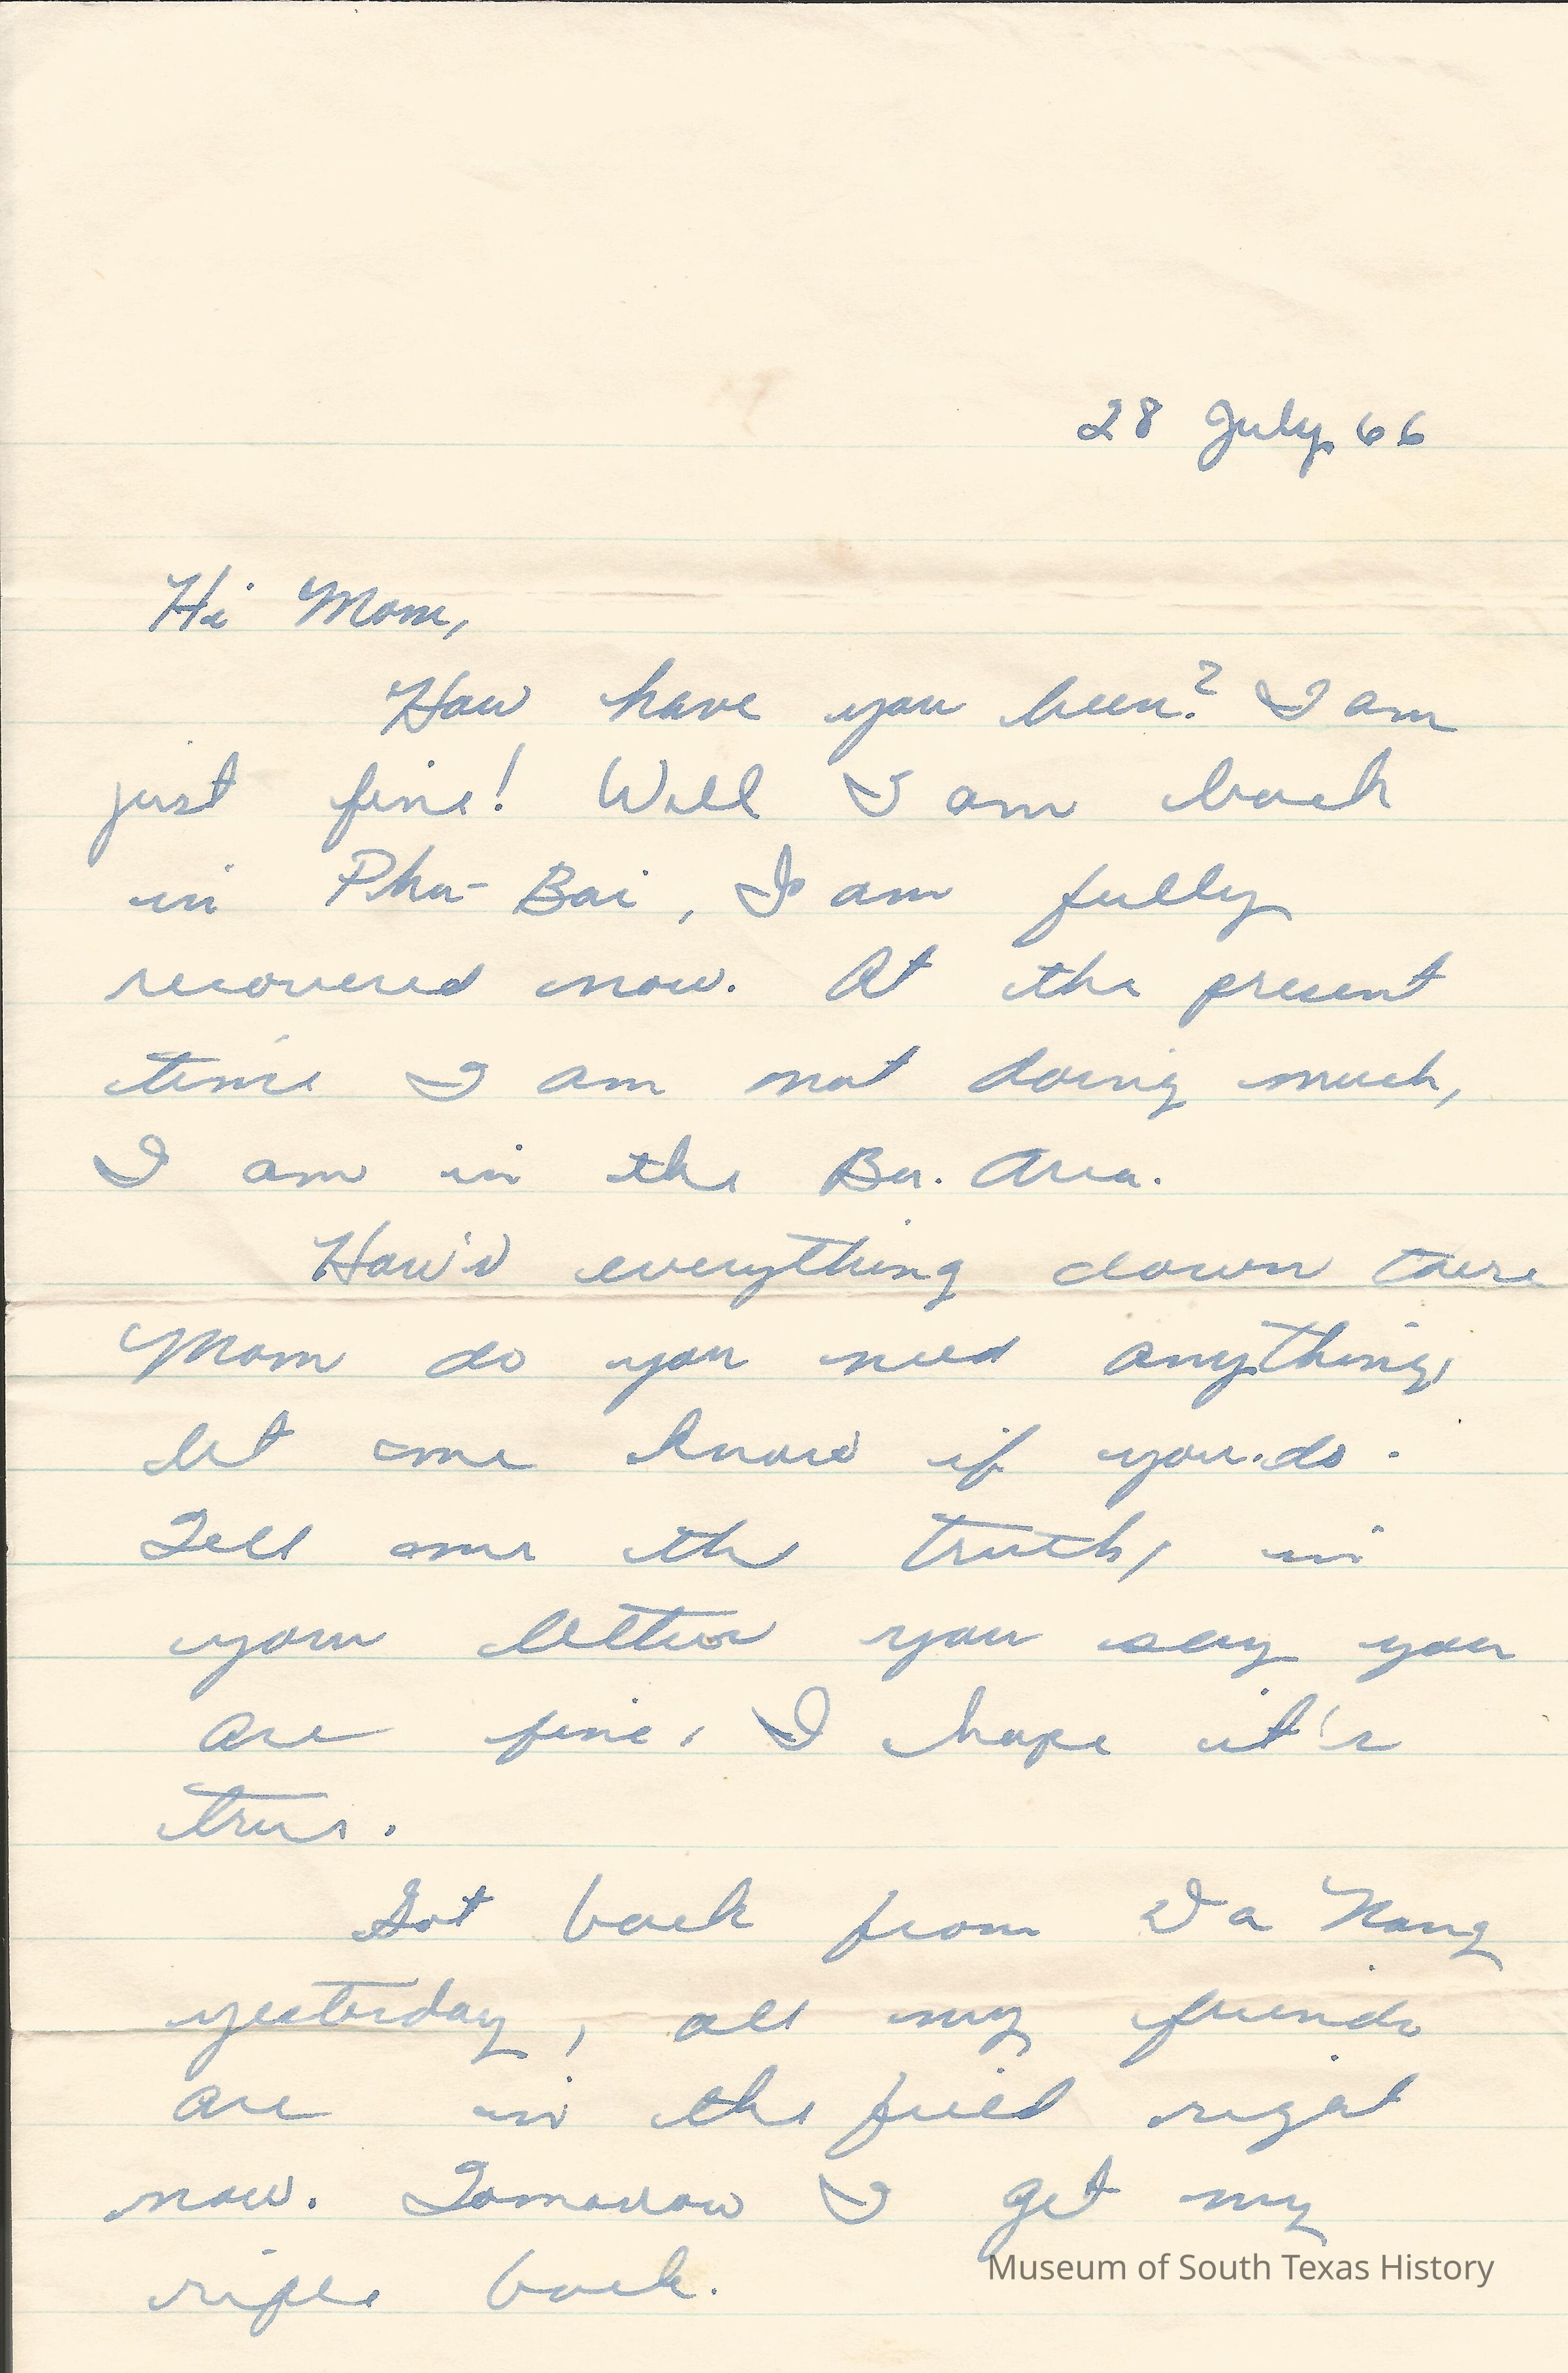 28 July 66
Hi Mom,
How have you been? I am
just fine! Well I am back
in Phu-Bai, I am fully
recovered now. At the present
time I am not doing much,
I am in the Bn. Area.
How's everything down there
Mom do you need anything,
let me know if you do.
Tell me the truth, in
your letter you say you
are fine, I hope it's
true.
Got back from Da Nang
yesterday, all my friends
are in the field right
now. Tomorrow I get my
rifle back.
Museum of South Texas History